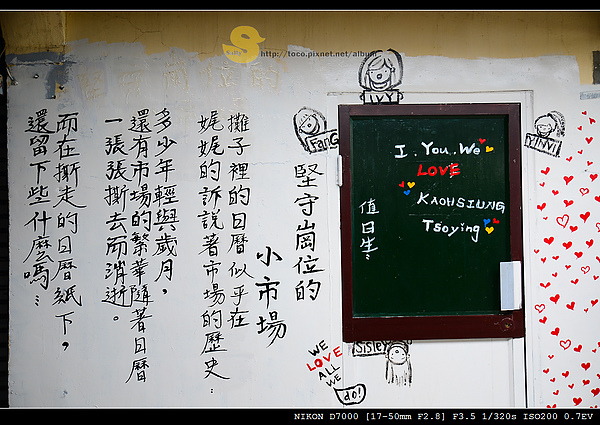 Sally
http://toco.pixnet.net/album
IVY
FanG
YINYI
堅守崗位的
小市場
攤子裡的日曆似乎在
娓娓的訴說著市場的歷史…
多少年輕與歲月，
還有市場的繁華隨著日曆
一張張撕去而消逝。
而在撕走的日曆紙下，
還留下些什麼嗎…
I. You. We
LOVE
KAOHSIUNG
Tsoying
值日生:
Sisley
WE
LOVE
ALL
WE
do!
NIKON D7000 [17-50mm F2.8] F3.5 1/320s ISO200 0.7EV